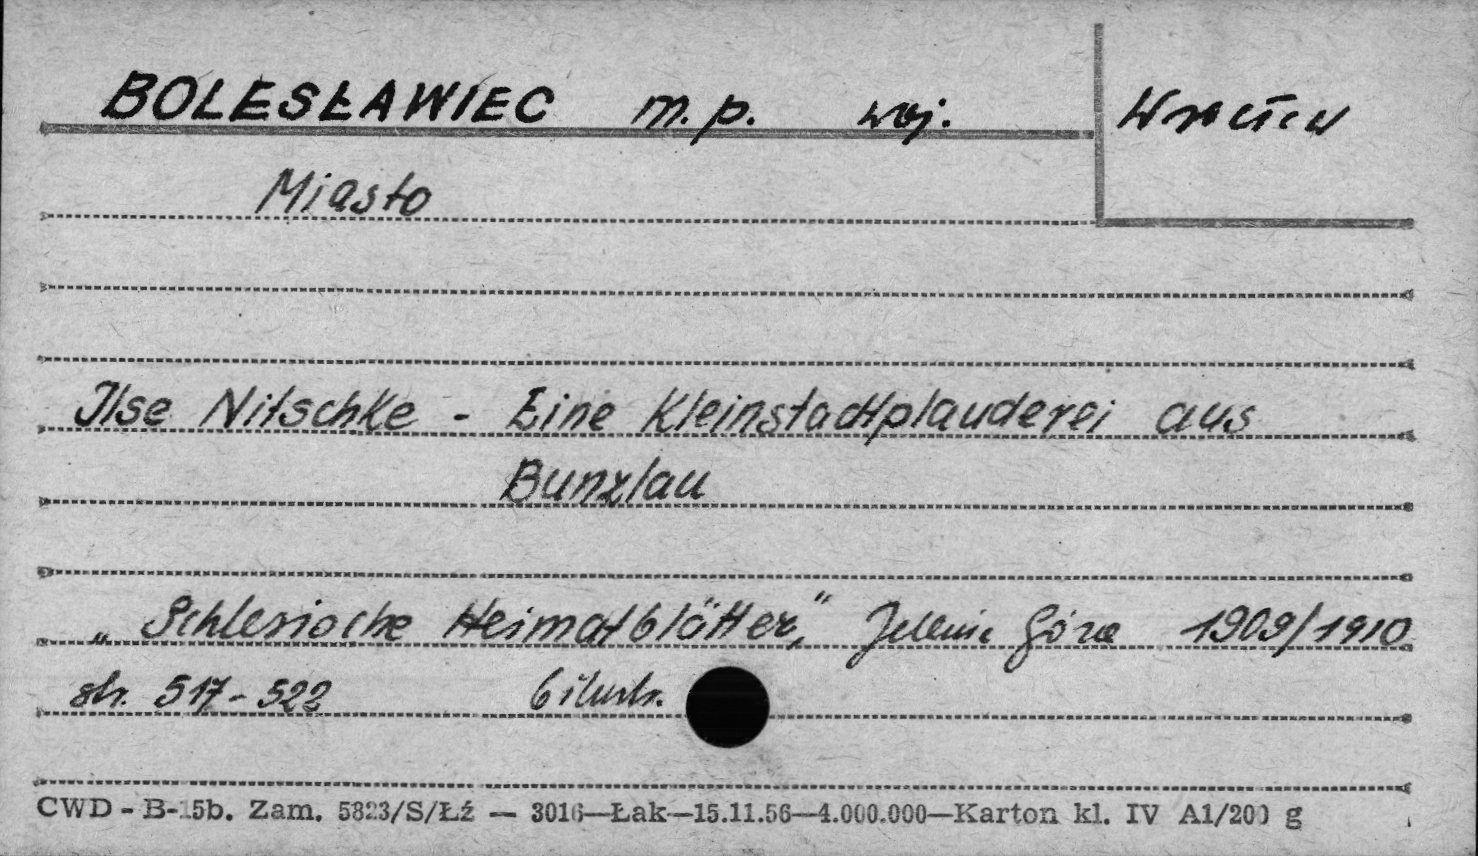 BOLESŁAWIEC m.p. woj. Wrocław
Miasto
Ilse Nitschke - Eine Kleinstadtplauderei aus
Bunzlau
„Schlesische Heimatblätter," Jelenia Góra 1909/1910
str. 517-522 6 ilustr.
CWD - B-15b. Zam. 5823/S/Łź — 3016—Łak—15.11.56—4.000.000—Karton kl. IV A1/200 g